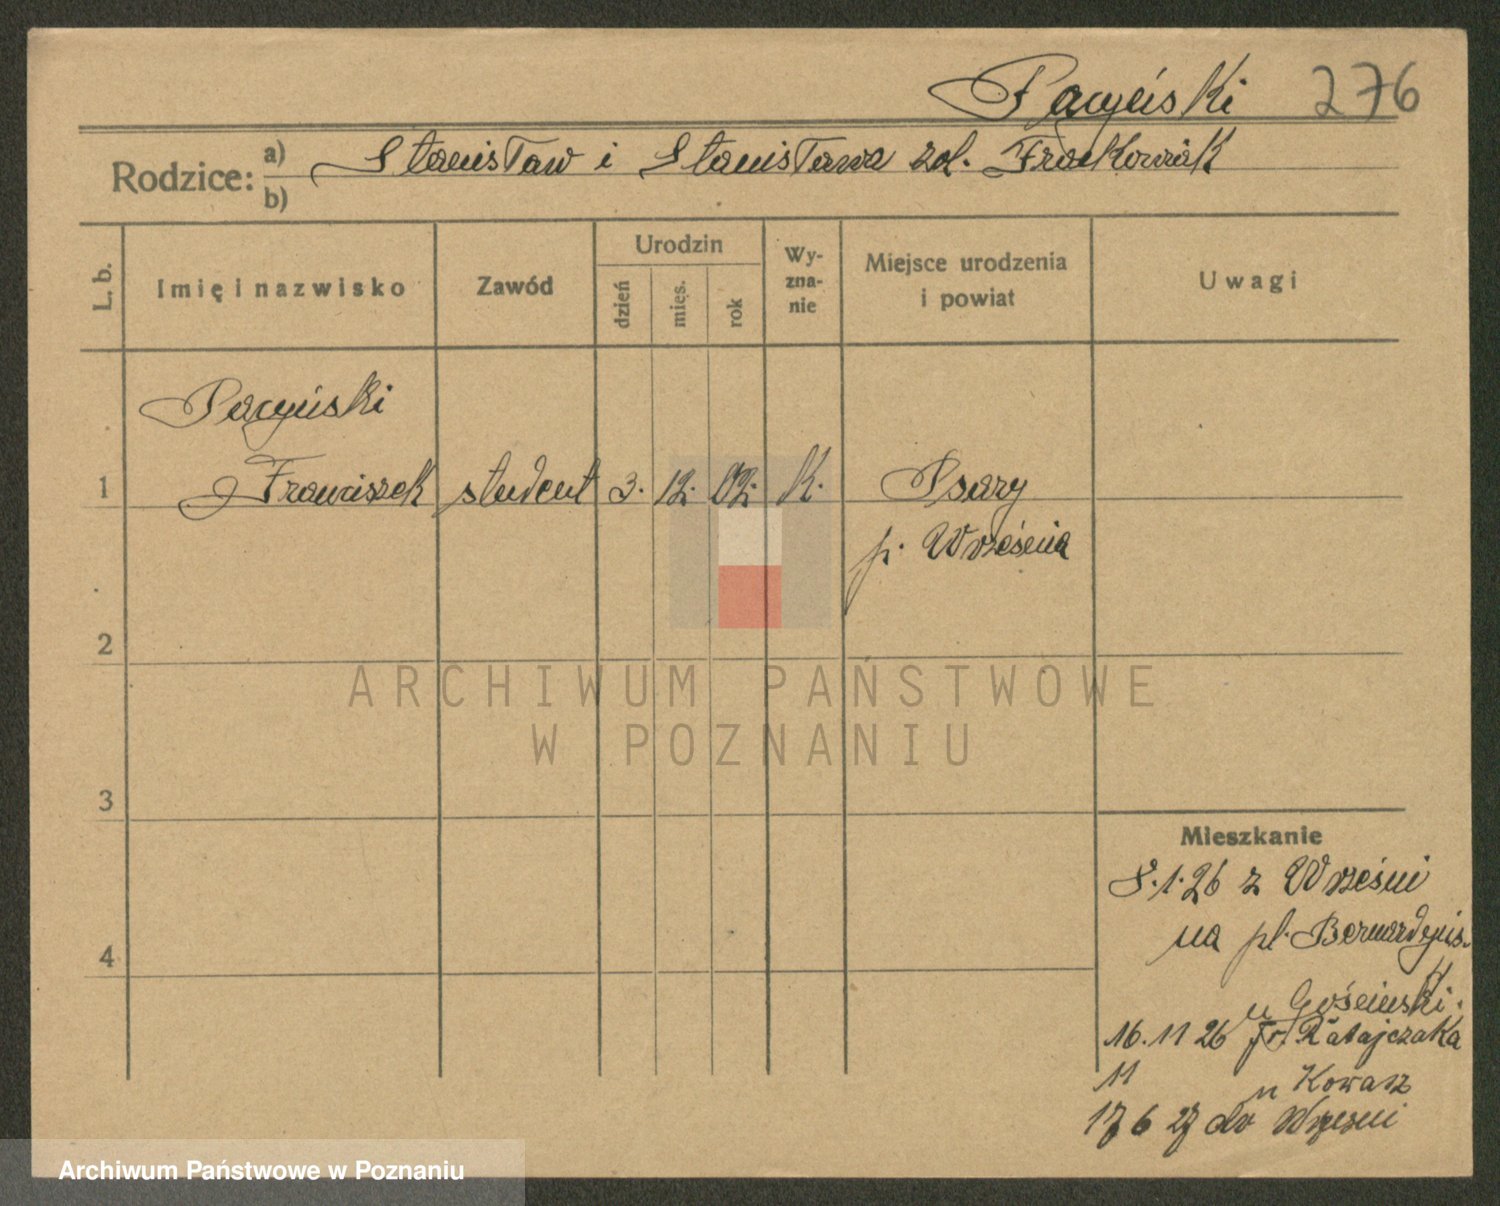 Pacyński 276
Rodzice: a) Stanisław i Stanisława zd. Frackowiak
b)
L. b.
Imię i nazwisko
Zawód
Urodzin
dzień
mięs.
rok
Wy-
zna-
nie
Miejsce urodzenia
i powiat
Uwagi
Pacyński
1 Franciszek student 3. 12. 02. K. Psary
p. Września
2
3
4
ARCHIWUM PAŃSTWOWE
W POZNANIU
Mieszkanie
8.1.26 z Wrześni
na pl. Bernardyńs.
u Gościński.
16.11 26 Fr. Ratajczaka
11 u Kowasz
17 6 27 do Wrześni
Archiwum Państwowe w Poznaniu